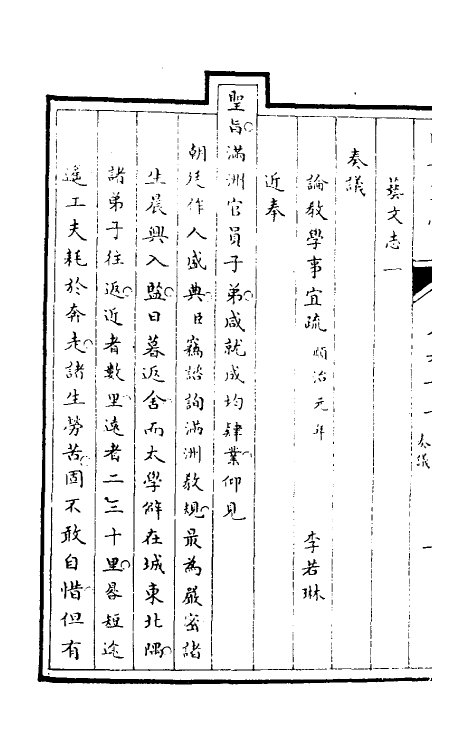 藝文志一
奏議
論教學事宜疏 順治元年 李若琳
近奉
聖旨滿洲官員子弟咸就成均肄業仰見
朝廷作人盛典臣竊諮詢滿洲教規最為嚴密諸
生晨興入監日暮返舍而太學僻在城東北隅
諸弟子往返近者數里遠者二三十里晷短途
遥工夫耗於奔走諸生勞苦固不敢自惜但有
奏議
一